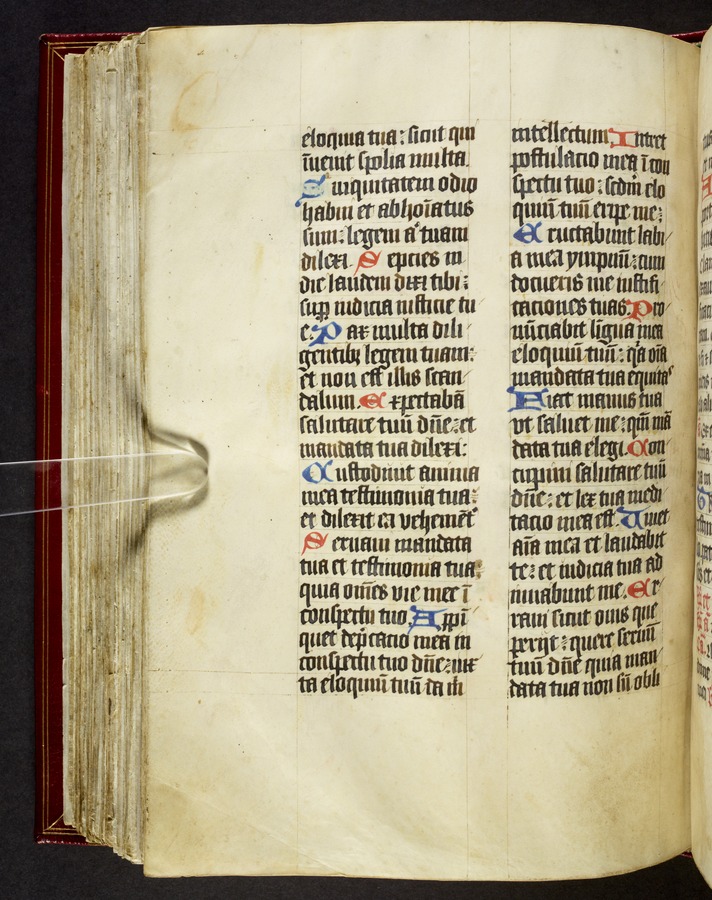 eloquia tua: sicut qui
īuenit spolia multa.
Iniquitatem odio
habui et abhoīatus
sum: legem aͭ tuam
dilexi. Sepcies in
die laudem dixi tibi:
sup iudicia iusticie tu
e. Pax multa dili
gentibꝫ legem tuam:
et non est illis scan
dalum. Expectabā
salutare tuū dn̄e: et
mandata tua dilexi:
Custodiuit anima
mea testimonia tua:
et dilexit ea vehemēt
Seruaui mandata
tua et testimonia tua:
quia om̄es vie mee ī
conspectu tuo. Appī
quet dep̄cacio mea in
conspectu tuo dn̄e: iux
ta eloquiū tuū da m̄
intellectum. Intret
postulacio mea ī con
spectu tuo: scdm̄ elo
quiū tuū eripe me:
Eructabunt labi
a mea ympnū: cum
docueris me iustifi
caciones tuas. Pro
nūciabit līgua mea
eloquiū tuū: q̄a oīa
mandata tua equitaˢ
Fiat manus tua
vt saluet me: qm̄ mā
data tua elegi. Con
cupiui salutare tuū
dn̄e: et lex tua medi
tacio mea est. Viuet
aīa mea et laudabit
te: et iudicia tua ad
iuuabunt me. Er
raui sicut ouis que
perijt: quere seruū
tuū dn̄e quia man
data tua non sū obli